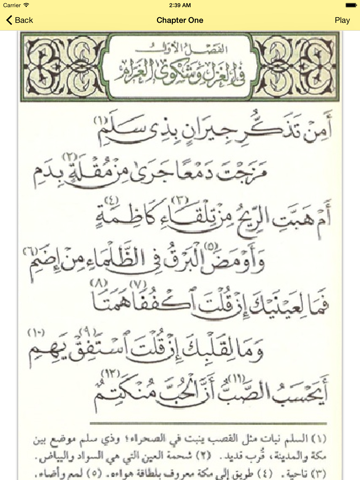 Carrier 2:39 AM
Back Chapter One Play
الفصل الأول
في الغزل وشكوى الغرام
أَمِنْ تَذَكُّرِ جِيرَانٍ بِذِي سَلَمٍ (١)
مَزَجْتَ دَمْعًا جَرَى مِنْ مُقْلَةٍ (٢) بِدَمِ
أَمْ هَبَّتِ الرِّيحُ مِنْ تِلْقَاءِ (٣) كَاظِمَةٍ (٤)
وَأَوْمَضَ (٥) الْبَرْقُ فِي الظَّلْمَاءِ مِنْ إِضَمِ (٦)
فَمَا لِعَيْنَيْكَ إِنْ قُلْتَ اكْفُفَا (٧) هَمَتَا (٨)
وَمَا لِقَلْبِكَ إِنْ قُلْتَ اسْتَفِقْ (٩) يَهِمِ (١٠)
أَيَحْسَبُ الصَّبُّ (١١) أَنَّ الْحُبَّ مُنْكَتِمٌ (١٢)
(١) السلم نبات مثل القصب ينبت في الصحراء؛ وذي سلم موضع بين
مكة والمدينة، قُرب قديد. (٢) شحمة العين التي هي السواد والبياض.
(٣) ناحية. (٤) طريق إلى مكة معروف بلطافة هواءه. (٥) لمع وأضاء.